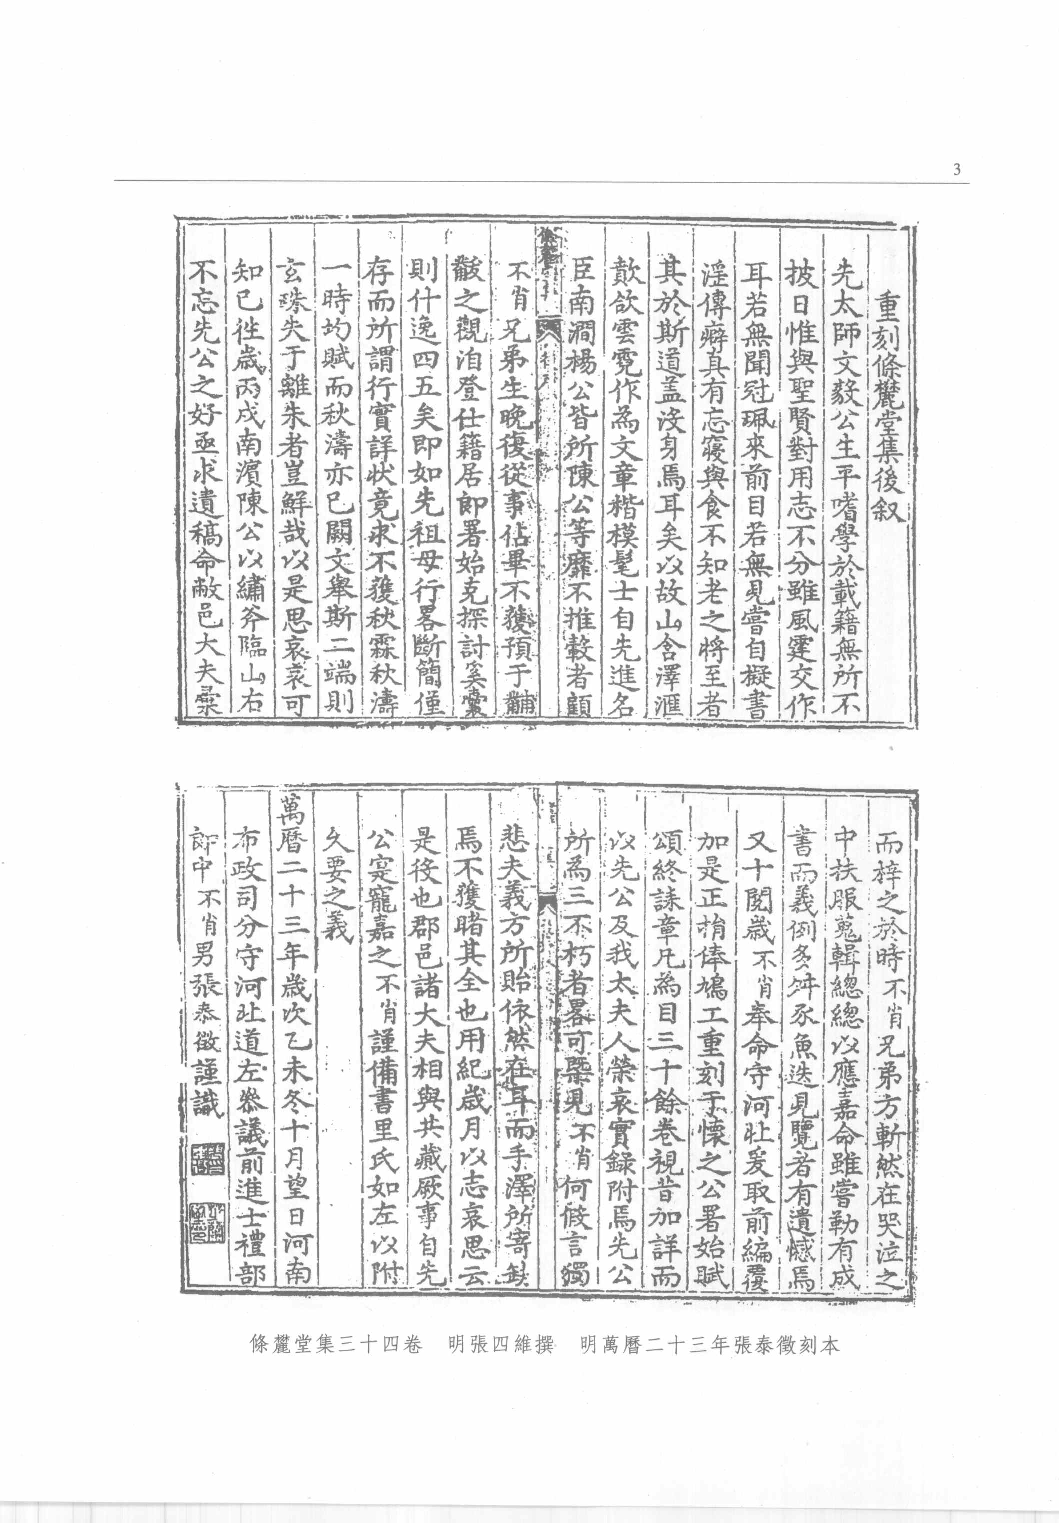 3
重刻條麓堂集後叙
先太師文毅公生平嗜學於載籍無所不
披日惟與聖賢對用志不分雖風霆交作
耳若無聞冠珮來前目若無見嘗自擬書
淫傳癖真有忘寢與食不知老之將至者
其於斯道蓋沒身焉耳矣以故山含澤滙
歕欱雲霓作為文章楷模髦士自先進名
臣南澗楊公皆所陳公等靡不推轂者顧
不肖兄弟生晚復從事佔畢不獲預于黼
黻之觀洎登仕籍居郎署始克探討奚囊
則什逸四五矣即如先祖母行畧斷簡僅
存而所謂行實詳狀竟求不獲秋霖秋濤
一時均賦而秋濤亦已闕文舉斯二端則
玄珠失于離朱者豈鮮哉以是思哀哀可
知已徃歲丙戌南濵陳公以繡斧臨山右
不忘先公之好亟求遺稿命敝邑大夫彙
而梓之於時不肖兄弟方斬然在哭泣之
中扶服蒐輯總總以應嘉命雖嘗勒有成
書而義例多舛豕魚迭見覽者有遺憾焉
又十閱歲不肖奉命守河北爰取前編覆
加是正捐俸鳩工重刻于懷之公署始賦
頌終誄章凡為目三十餘卷視昔加詳而
以先公及我太夫人榮哀實錄附焉先公
所為三不朽者畧可槩見不肖何假言獨
悲夫義方所貽依然在耳而手澤所寄缺
焉不獲睹其全也用紀歲月以志哀思云
是役也郡邑諸大夫相與共藏厥事自先
公寔寵嘉之不肖謹備書里氏如左以附
久要之義
萬曆二十三年歲次乙未冬十月望日河南
布政司分守河北道左叅議前進士禮部
郎中不肖男張泰徵謹識
條麓堂集三十四卷　明張四維撰　明萬曆二十三年張泰徵刻本